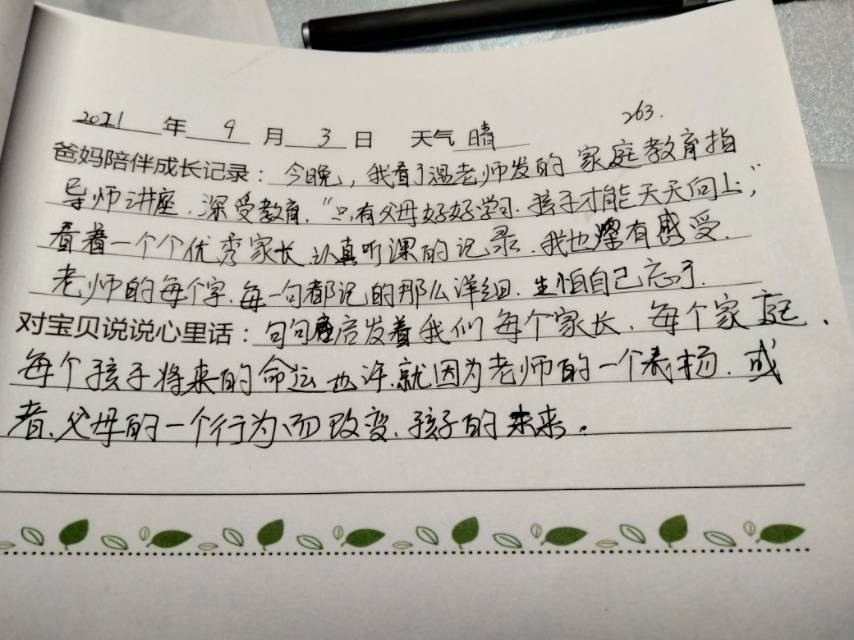 263.
2021年9月3日 天气晴
爸妈陪伴成长记录：今晚，我看了温老师发的家庭教育指
导师讲座，深受教育，“只有父母好好学习，孩子才能天天向上，”
看着一个个优秀家长，认真听课的记录，我也深有感受，
老师的每个字，每一句都记的那么详细，生怕自己忘了，
对宝贝说说心里话：句句启发着我们每个家长，每个家庭，
每个孩子将来的命运也许，就因为老师的一个表扬，或
者，父母的一个行为而改变，孩子的未来。